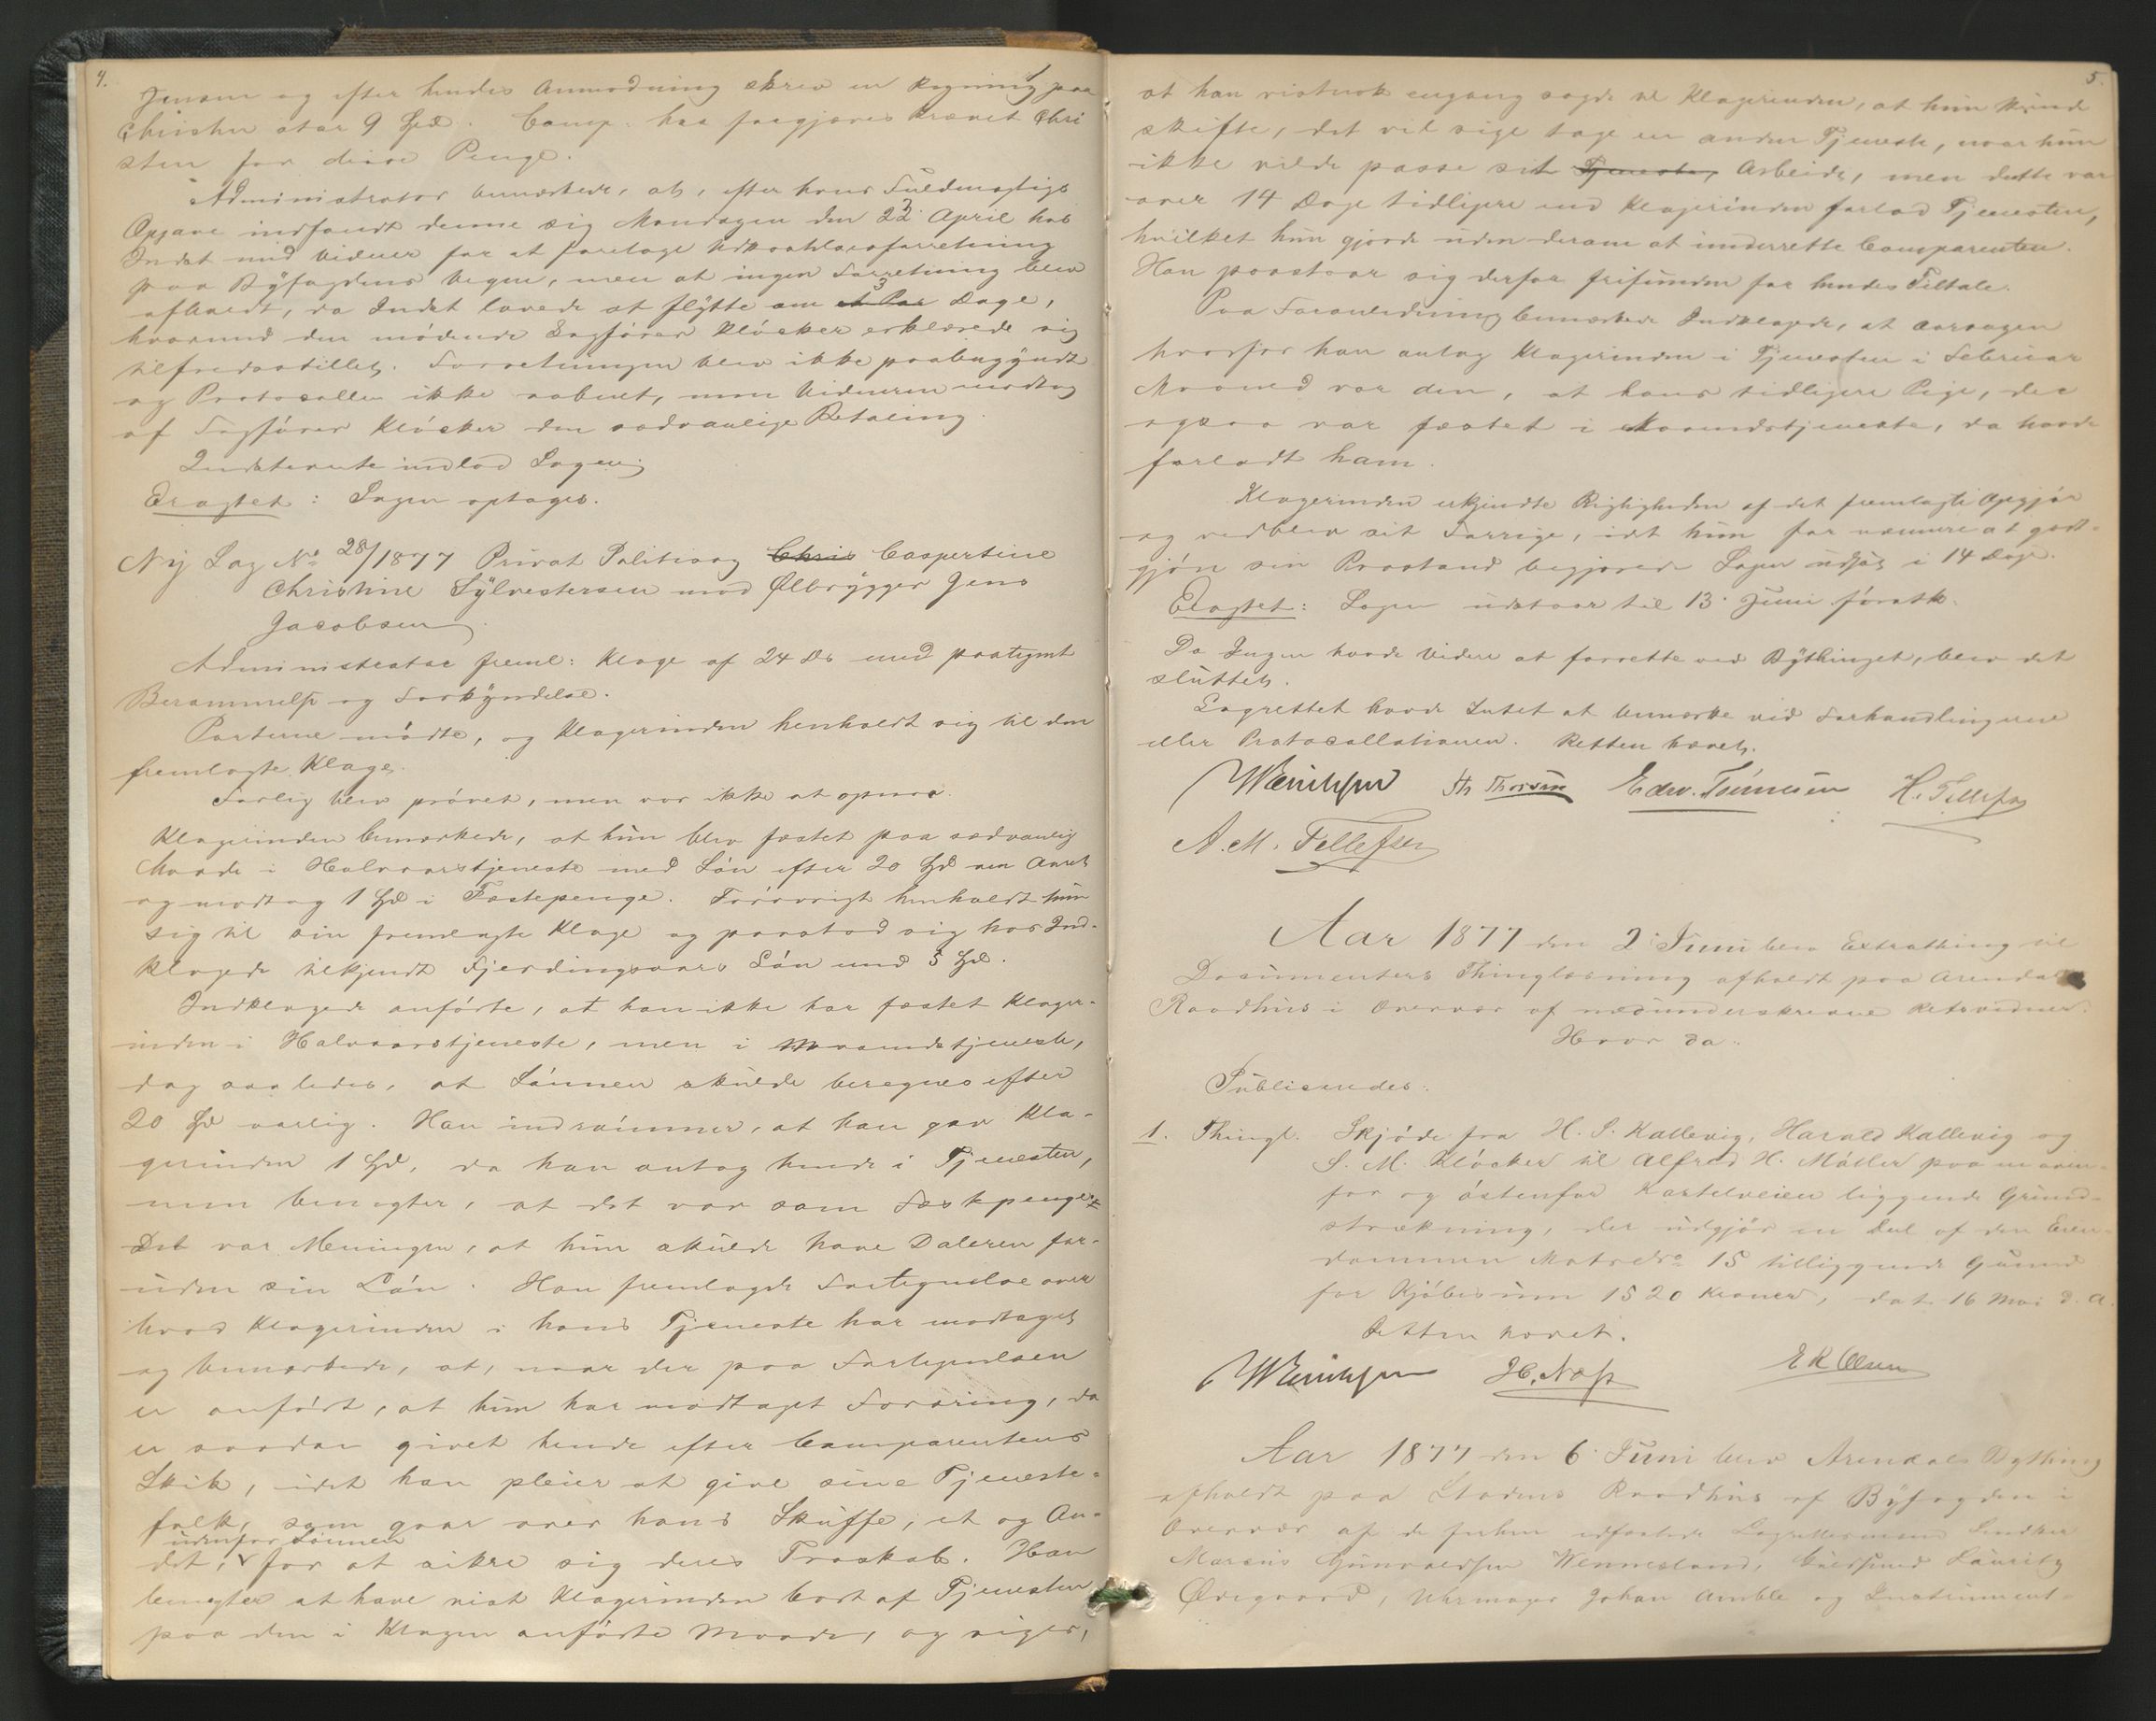 4.
Jensen og efter hendes Anmodning skrev en Regning paa
Christen stor 9 Spd. Comp. har forgjæves krævet Chri
sten for disse Penge.
Administrator bemærkede, at, efter hans Fuldmægtigs
Opgave indfandt denne sig Mandagen den 23 April hos
Indst med Vidner for at foretage Udkastelsesforretning
paa Byfogdens Vegne, men at ingen Forretning blev
afholdt, da Indst lovede at flytte om 3 et Par Dage,
hvormed den mødende Sagfører Kløcker erklærede sig
tilfredsstillet. Forretningen blev ikke paabegyndt
og Protocollen ikke aabnet, men Vidnerne modtog
af Sagfører Kløcker den sædvanlige Betaling.
Indstevnte indlod Sagen.
Eragtet: Sagen optages.
Ny Sag No 28/1877 Privat Politisag Chris Caspertine
Christine Sylvestersen mod Ølbrygger Jens
Jacobsen.
Administrator freml: Klage af 24 ds med paategnet
Berammelse og Forkyndelse.
Parterne mødte, og Klagerinden henholdt sig til den
fremlagte Klage.
Forlig blev prøvet, men var ikke at opnaa.
Klagerinden bemærkede, at hun blev fæstet paa sædvanlig
Maade i Halvaarstjeneste med Løn efter 20 Spd om Aaret
og modtog 1 Spd i Fæstepenge. Forøvrigt henholdt hun
sig til sin fremlagte Klage og paastod sig hos Ind-
klagede tilkjendt Fjerdingsaars Løn med 5 Spd.
Indklagede anførte, at han ikke har fæstet Klager-
inden i Halvaarstjeneste, men i Maanedstjeneste,
dog saaledes, at Lønnen skulde beregnes efter
20 Spd aarlig. Han indrømmer, at han gav Kla-
gerinden 1 Spd, da han antog hende i Tjenesten,
men benegter, at det var som Fæstepenge.
Det var Meningen, at hun skulde have Daleren for-
uden sin Løn. Han fremlagde Fortegnelse over
hvad Klagerinden i hans Tjeneste har modtaget
og bemærkede, at, naar der paa Fortegnelsen
er anført, at hun har modtaget Foræring, da
er saadan givet hende efter Comparentens
Skik, idet han pleier at give sine Tjeneste-
folk, som gaar over hans Skuffe, et og An-
udenfor Lønnen
det, for at sikre sig deres Troskab. Han
benegter at have vist Klagerinden bort af Tjenesten
paa den i Klagen anførte Maade, og siger,
5.
at han vistnok engang sagde til Klagerinden, at hun kunde
skifte, det vil sige tage en anden Tjeneste, naar hun
ikke vilde passe sit Tjeneste, Arbeide, men dette var
over 14 Dage tidligere end Klagerinden forlod Tjenesten,
hvilket hun gjorde uden derom at underrette Comparenten.
Han paastaar sig derfor frifunden for hendes Tiltale.
Paa Foranledning bemærkede Indklagede, at Aarsagen
hvorfor han antog Klagerinden i Tjenesten i Februar
Maaned var den, at hans tidligere Pige, der
ogsaa var fæstet i Maanedstjeneste, da havde
forladt ham.
Klagerinden erkjendte Rigtigheden af det fremlagte Opgjør
og vedblev sit Forrige, idet hun for nærmere at godt-
gjøre sin Paastand begjærede Sagen udsat i 14 Dage.
Eragtet: Sagen udstaar til 13. Juni førstk.
Da Ingen havde videre at forrette ved Bythinget, blev det
sluttet.
Lagrettet havde Intet at bemærke ved Forhandlingerne
eller Protocollationen. Retten hævet.
Th Thorsen Edw. H. Tellefsen
A. M. Tellefsen
Aar 1877 den 2. Juni blev Extrathing til
Documenters Thinglæsning afholdt paa Arendals
Raadhus i Overvær af nedunderskrevne Retsvidner.
Hvor da:
Publiceredes:
1. Thingl. Skjøde fra H. S. Kallevig, Harald Kallevig og
S. M. Kløcker til Alfred H. Møller paa en oven-
for og østenfor Kastelveien liggende Grund-
strækning, der udgjør en Deel af den Eien-
dommen Matr No 15 tilliggende Grund
for Kjøbesum 1520 Kroner, dat. 16 Mai d. A.
Retten hævet.
H. Næss E R Olsen
Aar 1877 den 6. Juni blev Arendals Bything
afholdt paa Stadens Raadhus af Byfogden i
Overvær af de edfæstede Lagrettesmænd
Marius Gunvaldsen Wennesland, Lauritz
Ødegaard, Uhrmager Johan Amble og Instrument-